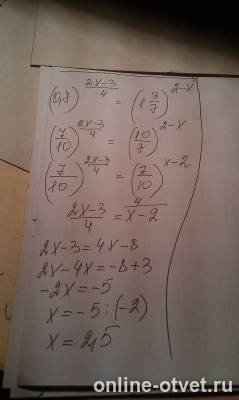 (0,7)^((2x-3)/4) = (1 3/7)^(2-x)
(7/10)^((2x-3)/4) = (10/7)^(2-x)
(7/10)^((2x-3)/4) = (7/10)^(x-2)
(2x-3)/4 = 4/(x-2)
2x-3=4x-8
2x-4x=-8+3
-2x=-5
x=-5:(-2)
x=2,5
online-otvet.ru